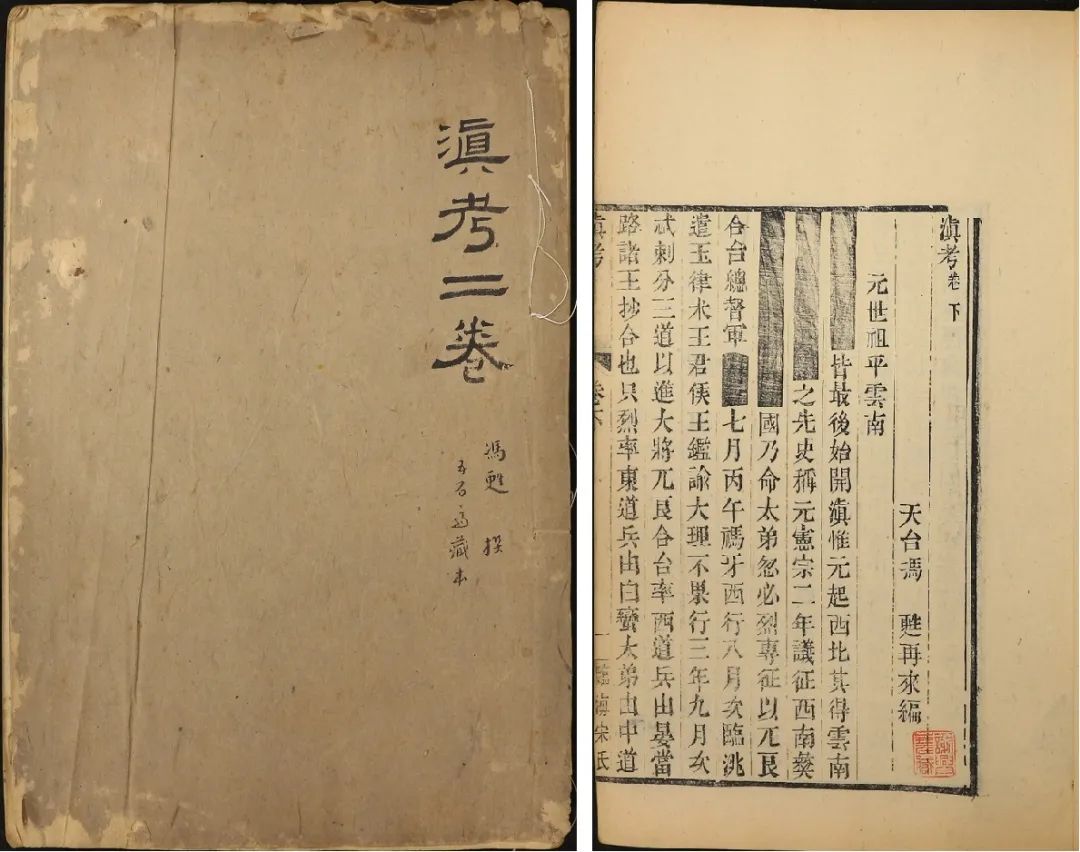 滇考二卷
馮甦 撰
五石斋藏本
滇考卷下
天台馮 甦再來編
元世祖平雲南
皆最後始開滇惟元起西北其得雲南
之先史稱元憲宗二年議征西南
國乃命太弟忽必烈專征以兀良
合台總督軍 七月丙午禡牙西行八月次臨洮
遣玉律术王君候王鑑諭大理不果行三年九月次
忒剌分三道以進大將兀良合台率西道兵由晏當
路諸王抄合也只烈率東道兵由白蠻太弟由中道
滇考 卷下 一 臨海宋氏